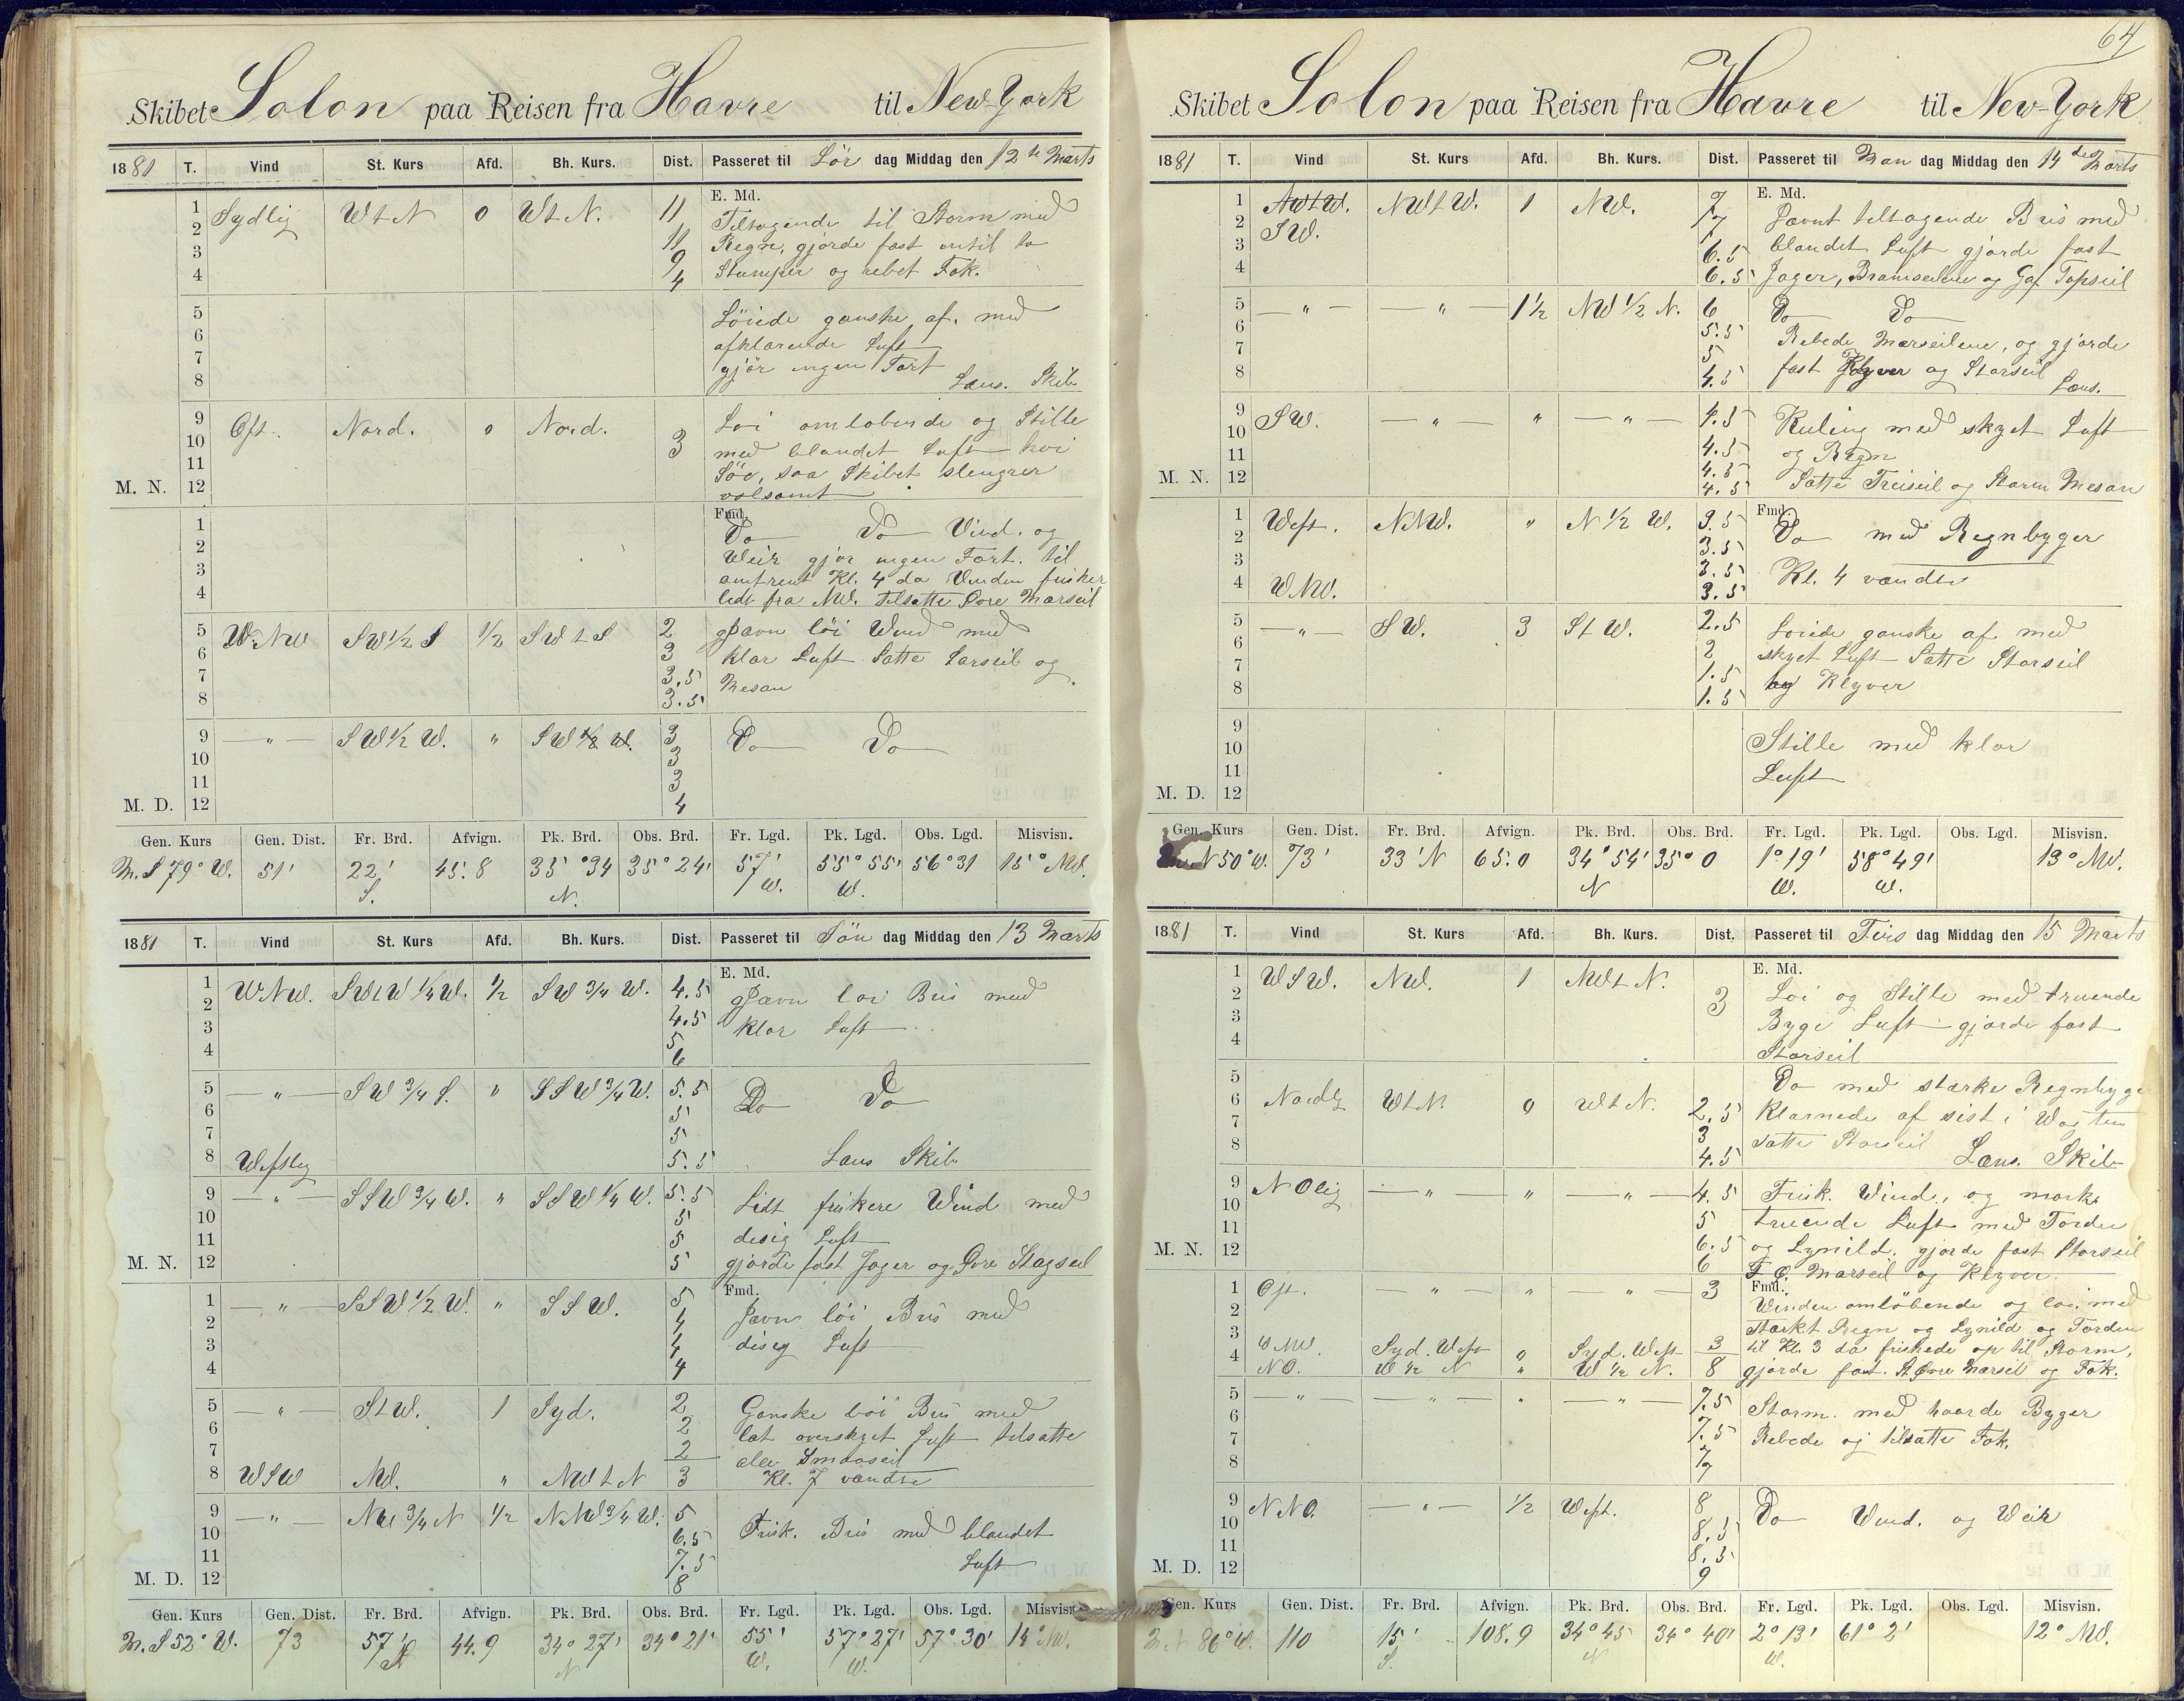 Skibet Solon paa Reisen fra Havre til New-York
1881 T. Vind St. Kurs Afd. Bh. Kurs. Dist. Passeret til Lör dag Middag den 12te Marts
E. Md.
1 Sydlig WtN 0 WtN. 11 Tiltagende til Storm med
2 11 Regn, gjorde fast intil to
3 9 Stumper og rebet Fok.
4 4
5 Löiede ganske af. med
6 afklarende Luft
7 gjör ingen Fart
8 Læns. Skib
9 Ost. Nord. 0 Nord. Löi omlobende og Stille
10 3 med blandet Luft höi
11 Söe, saa Skibet slengrer
M. N. 12 volsomt
Fmd.
1 Do Do Vind. og
2 Weir gjör ingen Fart. til
3 omtrent Kl. 4 da Vinden frisker
4 lidt fra NW. Tilsatte Övre Marseil
5 W.NW SW½S ½ SWtS 2 Jævn löi Wind med
6 3 klar Luft Satte Storseil og
7 3.5 Mesan
8 3.5
9 — " — SW½W. " SW½W. 3 Do Do
10 3
11 3
M. D. 12 4
Gen. Kurs Gen. Dist. Fr. Brd. Afvign. Pk. Brd. Obs. Brd. Fr. Lgd. Pk. Lgd. Obs. Lgd. Misvisn.
M. S 79° W. 51' 22' S. 45.8 35°34 N. 35°24' 57' W. 55°55' W. 56°31 15° NW.
1881 T. Vind St. Kurs Afd. Bh. Kurs. Dist. Passeret til Sön dag Middag den 13 Marts
E. Md.
1 WNW. SWtW¼W. ½ SW¾W. 4.5 Jævn löi Bris med
2 4.5 klar Luft
3 5
4 6
5 — " — SW¾S. " SSW¾W. 5.5 Do Do
6 5
7 5
8 Westlig 5.5 Læns Skib
9 — " — SSW¾W. " SSW¼W. 5.5 Lidt friskere Wind med
10 5 disig Luft
11 5 gjorde fast Jager og Övre Stagseil
M. N. 12 5
Fmd.
1 — " — SSW½W. " SSW. 5 Jævn löi Bris med
2 4 disig Luft
3 4
4 4
5 — " — StW. 1 Syd. 2 Ganske löi Bris med
6 2 let overskyet Luft tilsatte
7 2 alle Smaaseil
8 WSW NW. " NWtN 3 Kl. 7 vendte
9 — " — NW¾N ½ NNW¾W. 5 Frisk. Bris med blandet
10 6.5 Luft
11 7.5
M. D. 12 8
Gen. Kurs Gen. Dist. Fr. Brd. Afvign. Pk. Brd. Obs. Brd. Fr. Lgd. Pk. Lgd. Obs. Lgd. Misvisn.
M. S 52° W. 73 57' 44.9 34°27' N 34°21' 55' W. 57°27' W. 57°30' 14° NW.
64
Skibet Solon paa Reisen fra Havre til New-York
1881 T. Vind St. Kurs Afd. Bh. Kurs. Dist. Passeret til Man dag Middag den 14des Marts
E. Md.
1 NWtW. NWtW. 1 NW. 7 Jævnt tiltagende Bris med
2 SW. 7 blandet Luft gjorde fast
3 6.5 Jager, Bramseilene og Gaf Topseil
4 6.5
5 — " — — " — 1½ NW½N. 6 Do Do
6 5.5 Rebede Marseilene, og gjorde
7 5 fast Klyver og Storseil
8 4.5 Læns.
9 SW. — " — " — " — 4.5 Kuling med skyet Luft
10 4.5 og Regn
11 4.5 Satte Treiseil og Storm Mesan
M. N. 12 4.5
Fmd.
1 West. NNW. " N½W. 3.5 Do med Regnbyger
2 3.5
3 3.5 Kl. 4 vændte
4 WNW. 3.5
5 — " — SW. 3 StW. 2.5 Löiede ganske af med
6 2 skyet Luft Satte Storseil
7 1.5 og Klyver
8 1.5
9 Stille med klar
10 Luft
11
M. D. 12
Gen. Kurs Gen. Dist. Fr. Brd. Afvign. Pk. Brd. Obs. Brd. Fr. Lgd. Pk. Lgd. Obs. Lgd. Misvisn.
N 50° W. 73' 33'N 65.0 34°54' N 35°0 1°19' W. 58°49' W. 13° NW.
1881 T. Vind St. Kurs Afd. Bh. Kurs. Dist. Passeret til Tirs dag Middag den 15 Marts
E. Md.
1 WSW. NW. 1 NWtN. Löi og Stille med truende
2 3 Byge Luft gjorde fast
3 Storseil
4
5 Do med stærke Regnbyge
6 Nordlg WtN. 0 WtN. 2.5 Klarnede af sist i Wagten
7 3 satte Storseil
8 4.5 Læns. Skib
9 NOlig — " — " — " — 4.5 Frisk. Wind., og mörk
10 5 truende Luft med Torden
11 6.5 og Lynild. gjorde fast Storseil
M. N. 12 6 F. O. Marseil og Klyver.
Fmd.
1 Ost. — " — " — " — 3 Winden omlöbende og löi. med
2 Stærkt Regn og Lynild og Torden
3 WNW. Syd.West 0 Syd.West 3 til Kl. 3 da friskede op til Storm,
4 NO. W½N " W½N. 8 gjorde fast. St. Övre Marseil og Fok.
5 — " — " " — " — 7.5 Storm. med haarde Byger
6 7.5 Rebede og tilsatte Fok.
7 7
8 7
9 NNO. — " — ½ West. 8 Do Wind. og Weir
10 8.5
11 8.5
M. D. 12 9
Gen. Kurs Gen. Dist. Fr. Brd. Afvign. Pk. Brd. Obs. Brd. Fr. Lgd. Pk. Lgd. Obs. Lgd. Misvisn.
M N 86° W. 110 15' S. 108.9 34°45 N 34°40' 2°13' W. 61°2' 12° NW.